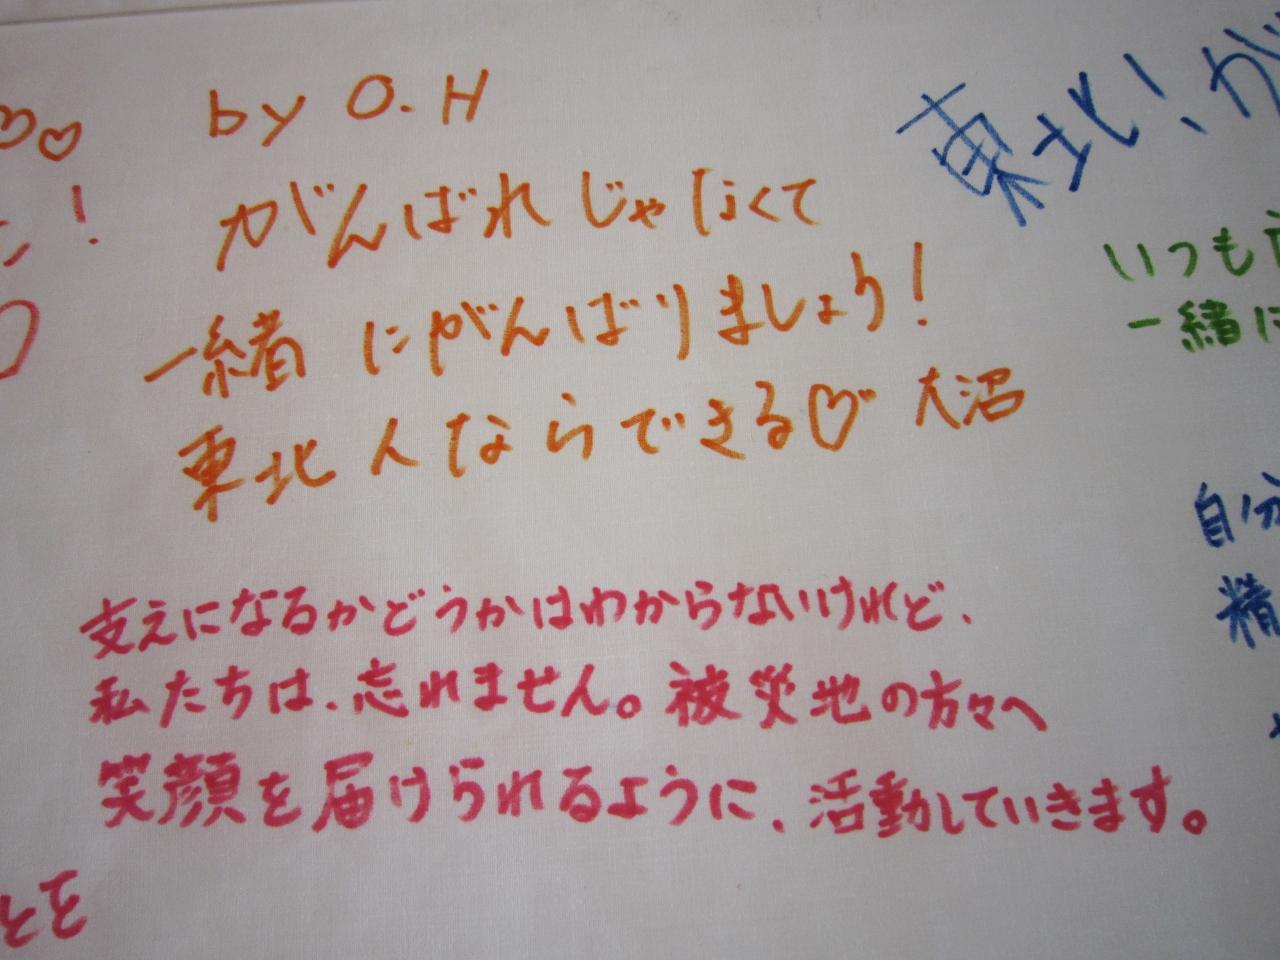 by O.H
がんばれじゃなくて
一緒にがんばりましょう!
東北人ならできる♡ 大沼
支えになるかどうかはわからないけれど、
私たちは、忘れません。被災地の方々へ
笑顔を届けられるように、活動していきます。
とを
東北!、が
いつも
一緒に
自分
精